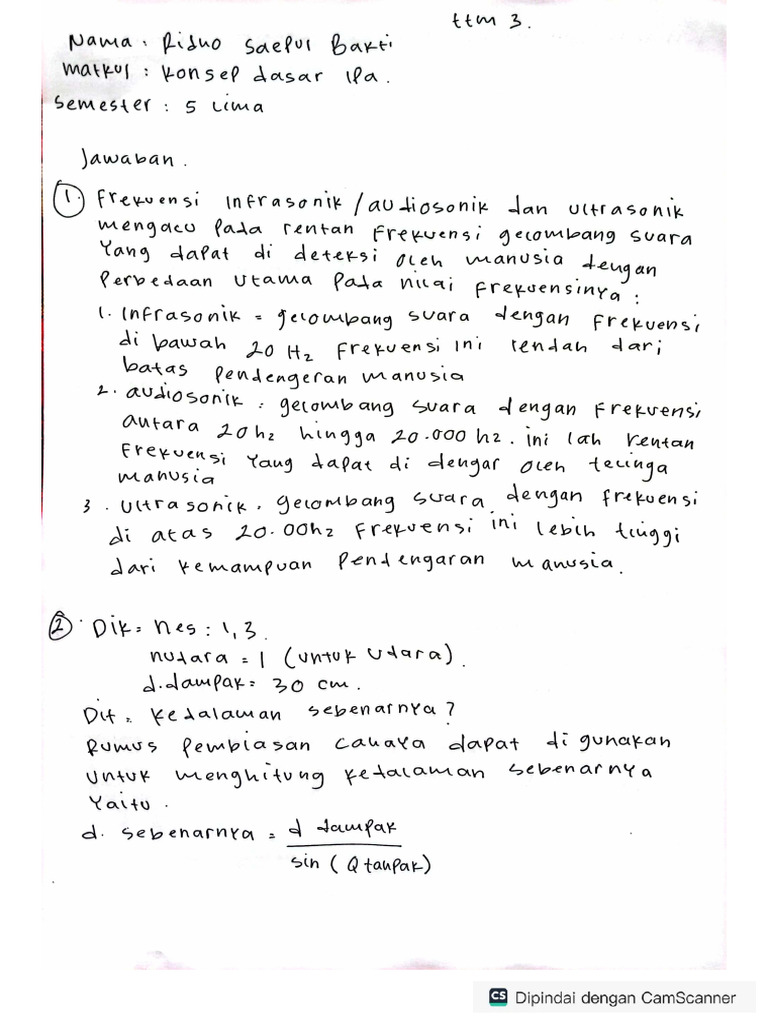 ttm 3.
Nama : Ridho Saeful Bakti
matkul : konsep dasar ipa.
semester : 5 lima
Jawaban.
1. Frekuensi infrasonik / audiosonik dan ultrasonik
mengacu pada rentan frekuensi gelombang suara
Yang dapat di deteksi oleh manusia dengan
Perbedaan utama pada nilai frekuensinya :
1. Infrasonik = gelombang suara dengan frekuensi
di bawah 20 Hz frekuensi ini rendah dari
batas pendengeran manusia
2. audiosonik : gelombang suara dengan frekuensi
antara 20hz hingga 20.000 hz. ini lah rentan
frekuensi Yang dapat di dengar oleh telinga
manusia
3. Ultrasonik. gelombang suara dengan frekuensi
di atas 20.00hz frekuensi ini lebih tinggi
dari kemampuan pendengaran manusia.
2. Dik = nes : 1,3.
nudara = 1 (untuk udara).
d.dampak = 30 cm.
Dit = kedalaman sebenarnya ?
Rumus pembiasan cahaya dapat di gunakan
untuk menghitung kedalaman sebenarnya
Yaitu.
d. sebenarnya = d tampak
sin (Q tanpak)
CS Dipindai dengan CamScanner